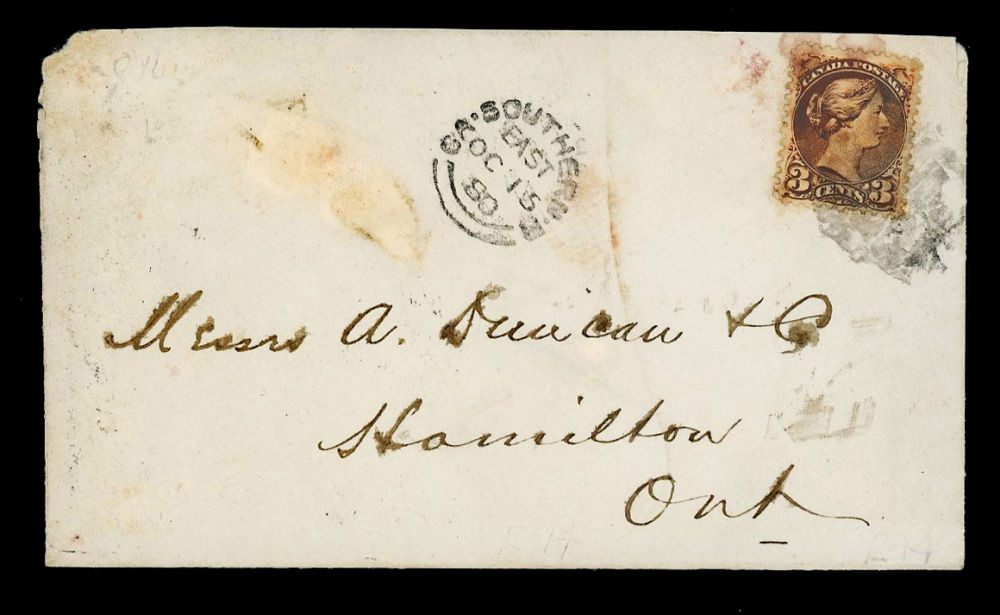 CA. SOUTHERN. R
EAST
OC 15
80
CANADA POSTAGE
3 CENTS 3
Messrs A. Duncan & Co
Hamilton
Ont